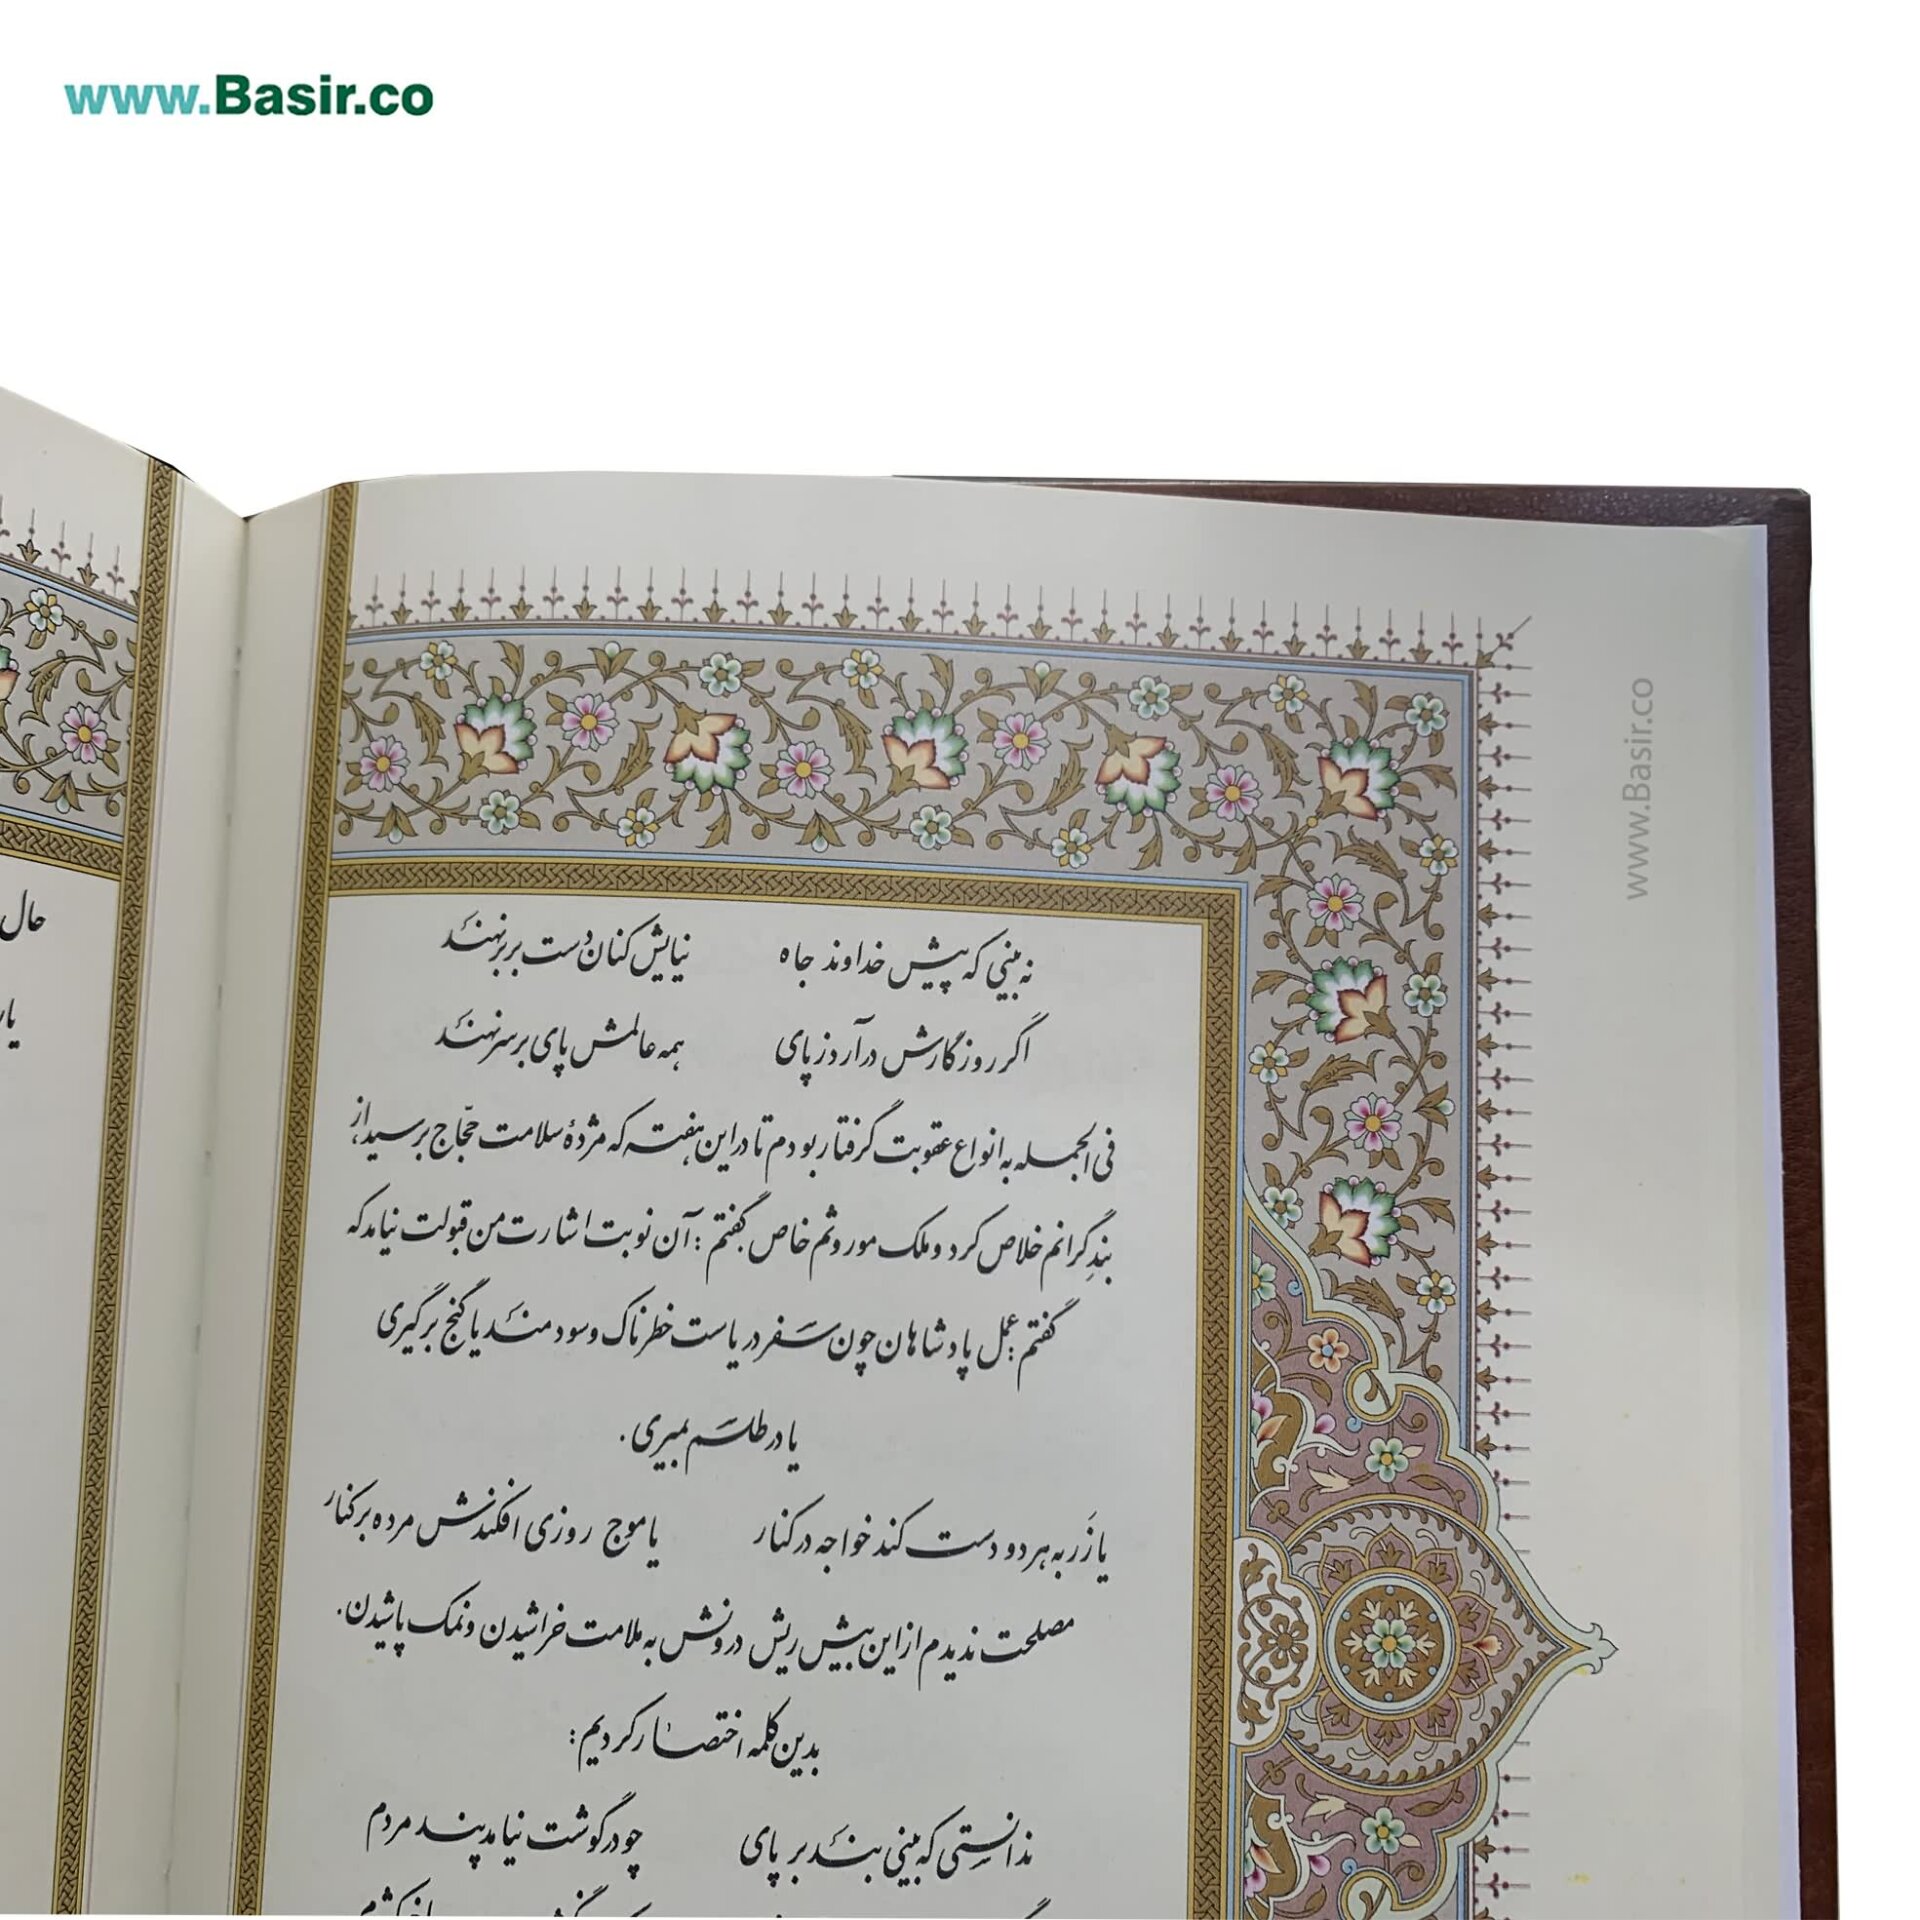 www.Basir.co
www.Basir.co
نه بینی که پیش خداوند جاه نیایش کنان دست بر بر نهند
اگر روزگارش درآرد ز پای همه عالمش پای بر سر نهند
فی الجمله به انواع عقوبت گرفتار بودم تا در این هفته که مژدهٔ سلامت حجّاج برسید از
بندِ گرانم خلاص کرد و ملک موروثم خاص گفتم: آن نوبت اشارت من قبولت نیامد که
گفتم: عمل پادشاهان چون سفر دریاست خطرناک و سودمند یا گنج برگیری
یا در طلسم بمیری.
یا زَر به هر دو دست کند خواجه در کنار یا موج روزی افکندش مرده بر کنار
مصلحت ندیدم از این بیش ریش درونش به ملامت خراشیدن و نمک پاشیدن.
بدین کلمه اختصار کردیم:
ندانستی که بینی بند بر پای چو در گوشت نیامد پند مردم
حال